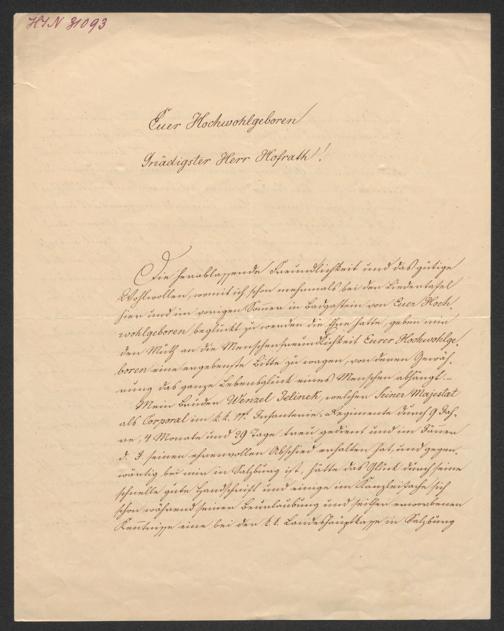 HIN 81093
Euer Hochwohlgeboren
Gnädigster Herr Hofrath!
Die herablassende Freundlichkeit und das gütige
Wohlwollen, womit ich schon mehrmals bei der Liedertafel
hier und im vorigen Sommer in Badgastein von Euer Hoch-
wohlgeboren beglückt zu werden die Ehre hatte, geben mir
den Muth an die Menschenfreundlichkeit Eurer Hochwohlge-
boren eine ergebenste Bitte zu wagen, von deren Gewäh-
rung das ganze Lebensglück eines Menschen abhängt.-
Mein Bruder Wenzel Jelinek, welcher Seiner Majestät
als Corporal im k.k. 17. Infanterie-Regimente durch 9 Jah-
re, 4 Monate und 29 Tage treu gedient und im Jänner
d. J. seinen ehrenvollen Abschied erhalten hat, und gegen-
wärtig bei mir in Salzburg ist, hätte das Glück durch seine
schnelle gute Handschrift und einige im Kanzleifache sich
schon während seiner Beurlaubung und seither erworbenen
Kentnisse eine bei der k.k. Landeshauptkasse in Salzburg